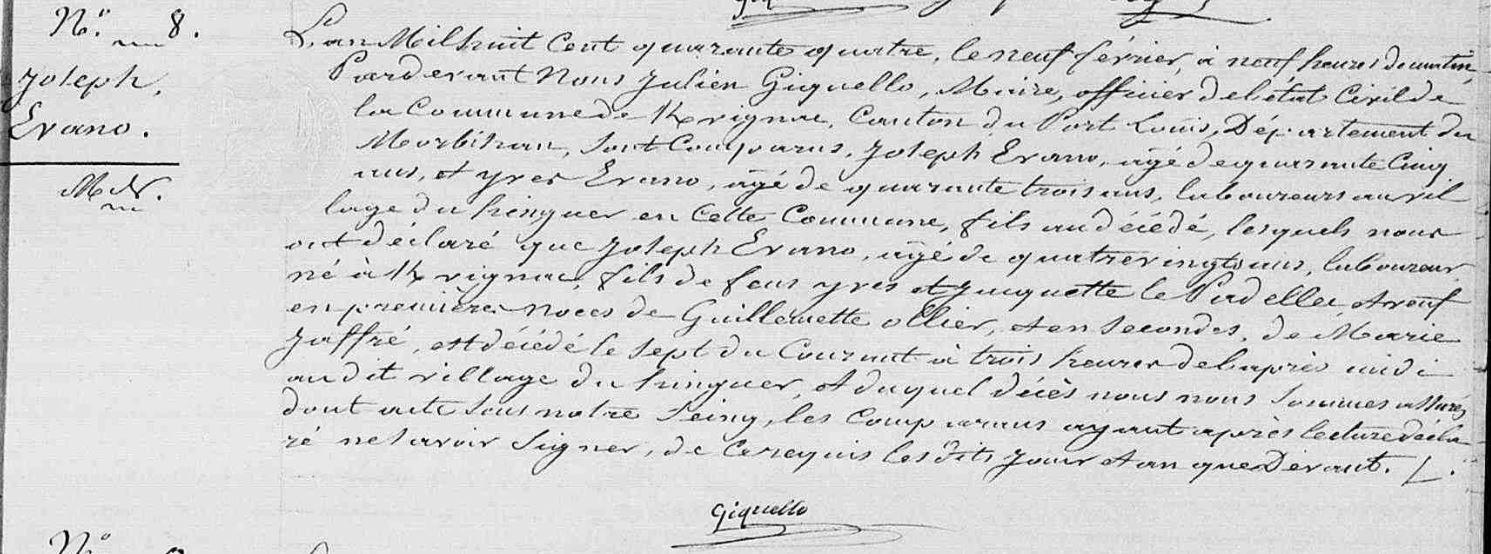 N.° 8.
Joseph,
Evano.
M. N.
L'an Mil huit Cent quarante quatre, le neuf février, à neuf heures du matin,
Pardevant Nous Julien Giquello, Maire, officier de l'état Civil de
la Commune de Kvignac, Canton du Port Louis, Département du
Morbihan, sont Comparus, Joseph Evano, âgé de quarante Cinq
ans, et yves Evano, âgé de quarante trois ans, laboureurs au vil
lage du hinguer en Cette Commune, fils au décédé, lesquels nous
ont déclaré que Joseph Evano, âgé de quatrevingts ans, laboureur
né à Kvignac, fils de feus yves et Jacquette le Padellec, et veuf
en premières noces de Guillemette ollier, et en secondes, de Marie
Jaffré, est décédé le sept du Courant à trois heures de l'après midi
au dit village du hinguer, et duquel décès nous nous sommes assurés
dont acte sous notre seing, les Comparans ayant après lecture décla
ré ne savoir signer, de ce requis les dits jour et an que Devant. /.
Giquello
N.°